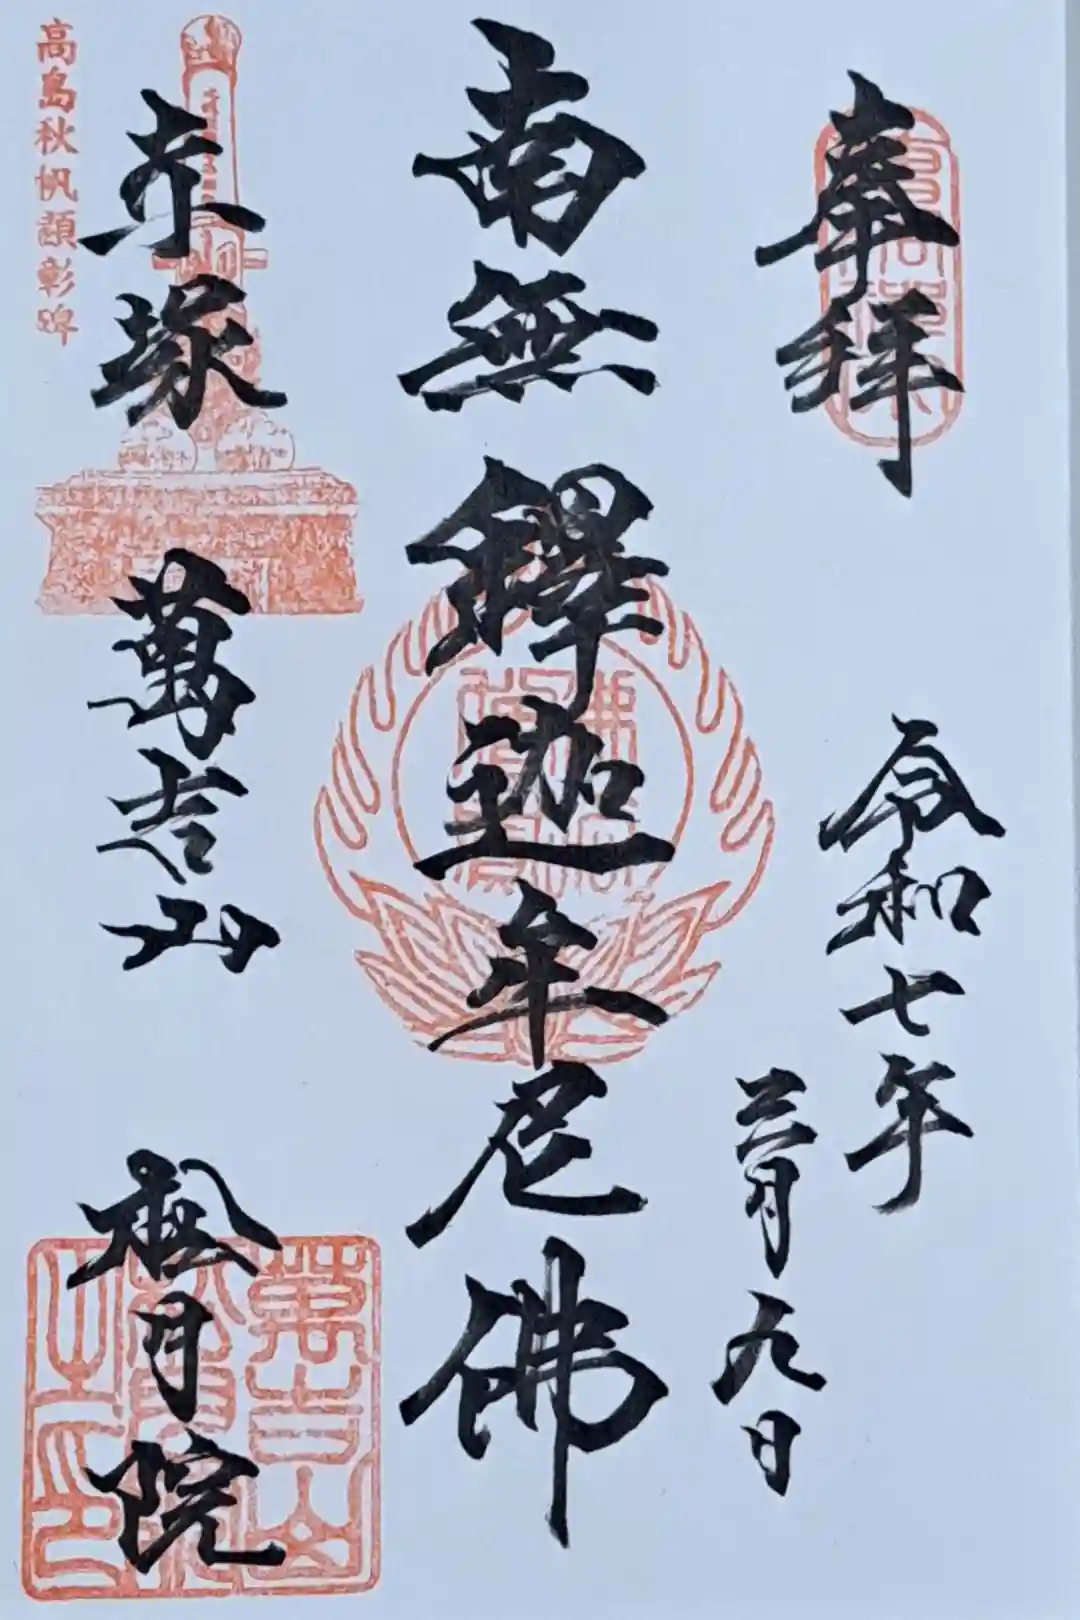 奉拝
令和七年
三月九日
南無釋迦牟尼佛
高島秋帆顕彰碑
赤塚
萬吉山
松月院